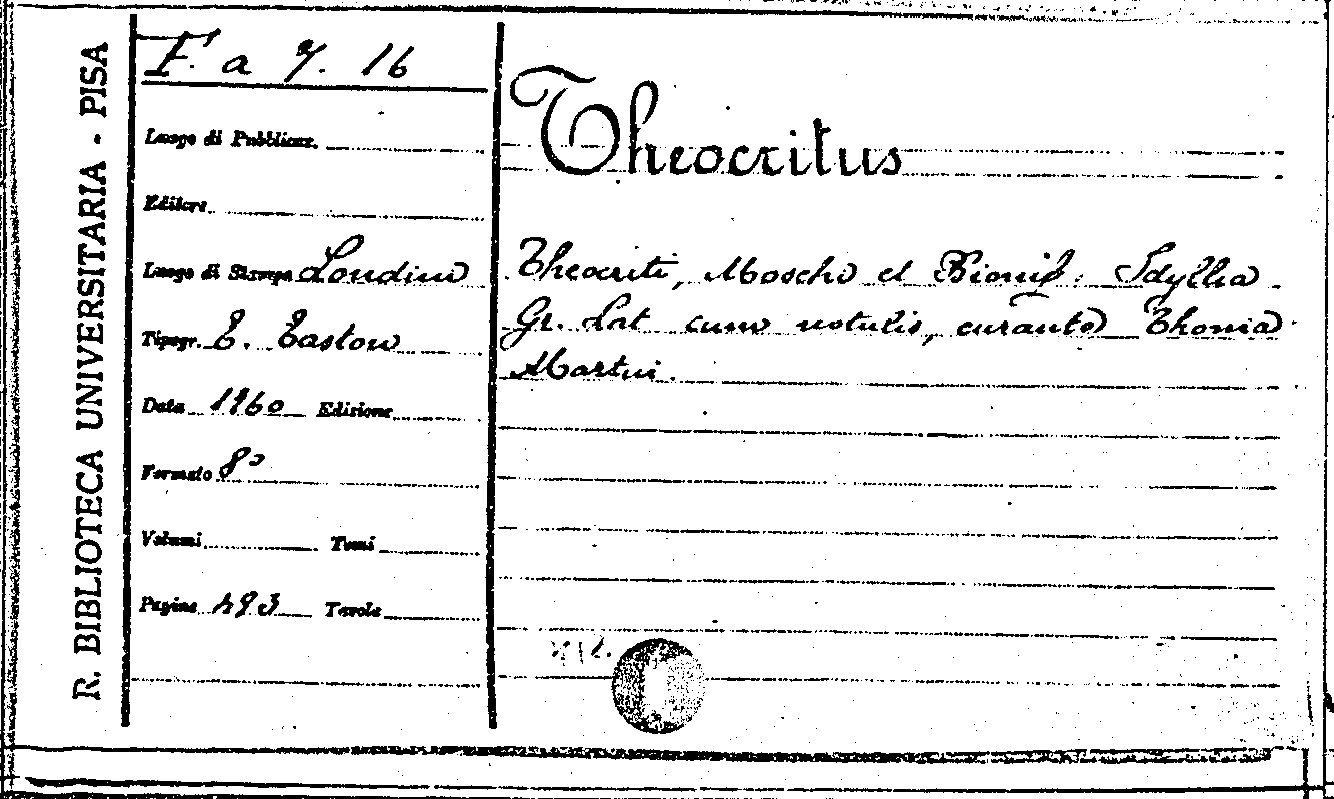 R. BIBLIOTECA UNIVERSITARIA - PISA
F. a 7. 16
Luogo di Pubblicaz.
Editore
Luogo di Stampa Londini
Tipogr. E. Easton
Data 1760 Edizione
Formato 8°
Volumi Tomi
Pagine 493 Tavole
Theocritus
Theocriti, Moschi et Bionis: Idyllia
Gr. Lat cum notulis, curante Thoma
Martin.